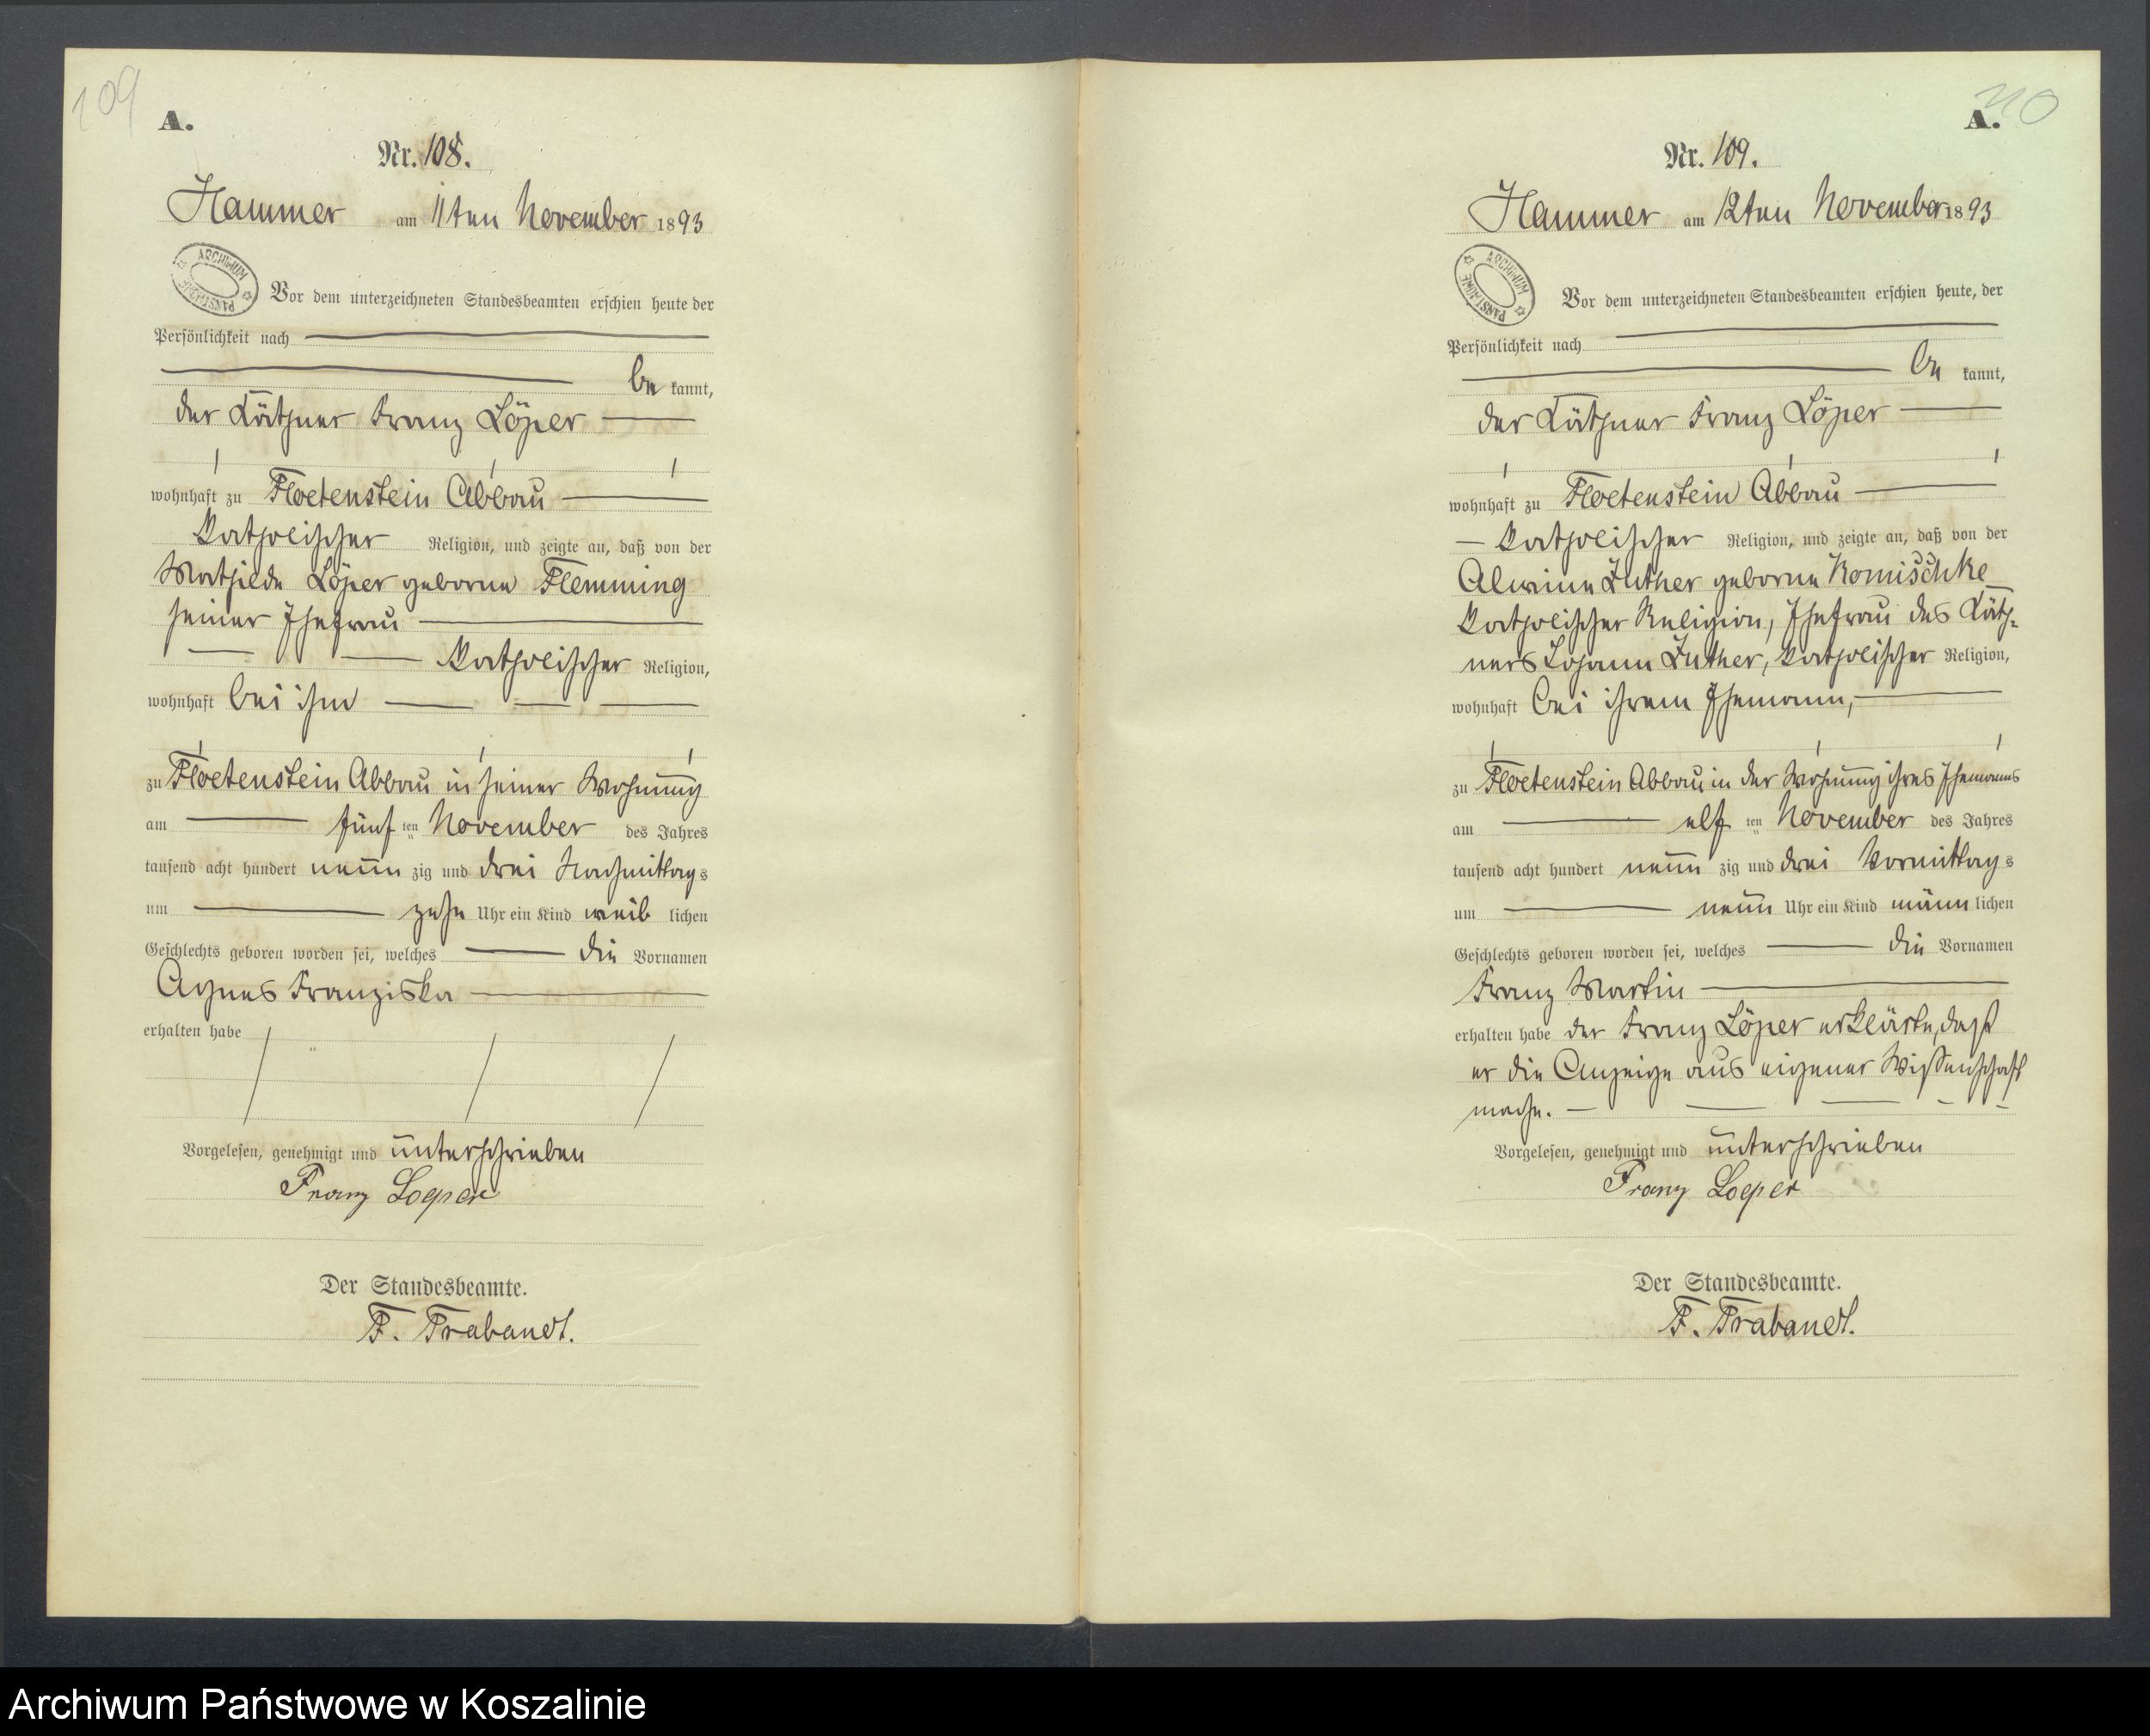 109
A.
Nr. 108.
Hammer am 11ten November 1893
ARCHIWUM PAŃSTWOWE
Vor dem unterzeichneten Standesbeamten erschien heute der
Persönlichkeit nach
be kannt,
der Käthner Franz Löper
wohnhaft zu Floetenstein Abbau
katholischer Religion, und zeigte an, daß von der
Mathilde Löper geborne Flemming
seiner Ehefrau
katholischer Religion,
wohnhaft bei ihm
zu Floetenstein Abbau in seiner Wohnung
am fünf ten November des Jahres
tausend acht hundert neun zig und drei Nachmittags
um zehn Uhr ein Kind weib lichen
Geschlechts geboren worden sei, welches die Vornamen
Agnes Franziska
erhalten habe
Vorgelesen, genehmigt und unterschrieben
Franz Loeper
Der Standesbeamte.
F. Trabandt.
110
A.
Nr. 109.
Hammer am 12ten November 1893
ARCHIWUM PAŃSTWOWE
Vor dem unterzeichneten Standesbeamten erschien heute, der
Persönlichkeit nach
be kannt,
der Käthner Franz Löper
wohnhaft zu Floetenstein Abbau
katholischer Religion, und zeigte an, daß von der
Alwine Luther geborne Komischke
katholischer Religion, Ehefrau des Käth-
ners Johann Luther, katholischer Religion,
wohnhaft bei ihrem Ehemann,
zu Floetenstein Abbau in der Wohnung ihres Ehemanns
am elf ten November des Jahres
tausend acht hundert neun zig und drei Vormittags
um neun Uhr ein Kind männ lichen
Geschlechts geboren worden sei, welches die Vornamen
Franz Martin
erhalten habe der Franz Löper erklärte, daß
er die Anzeige aus eigener Wissenschaft
mache.
Vorgelesen, genehmigt und unterschrieben
Franz Loeper
Der Standesbeamte.
F. Trabandt.
Archiwum Państwowe w Koszalinie